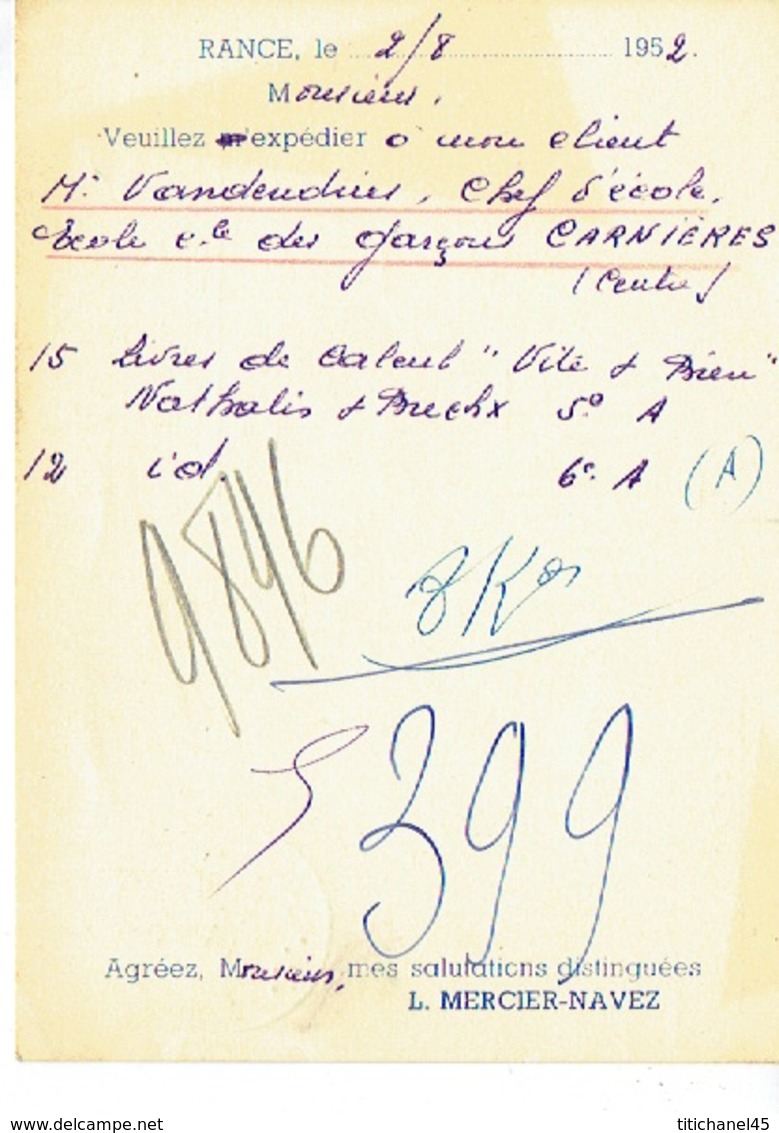 RANCE, le 2/8 1952.
Monsieur,
Veuillez m'expédier à mon client
Mr. Vandendries, Chef d'école,
Ecole cle des garçons CARNIÈRES
(Centre)
15 Livres de Calcul "Vite & Bien"
Nathalis & Brechx 5e A
12 id. 6e A (A)
9846
399
Agréez, Monsieur, mes salutations distinguées
L. MERCIER-NAVEZ
delcampe.net
titichanel45